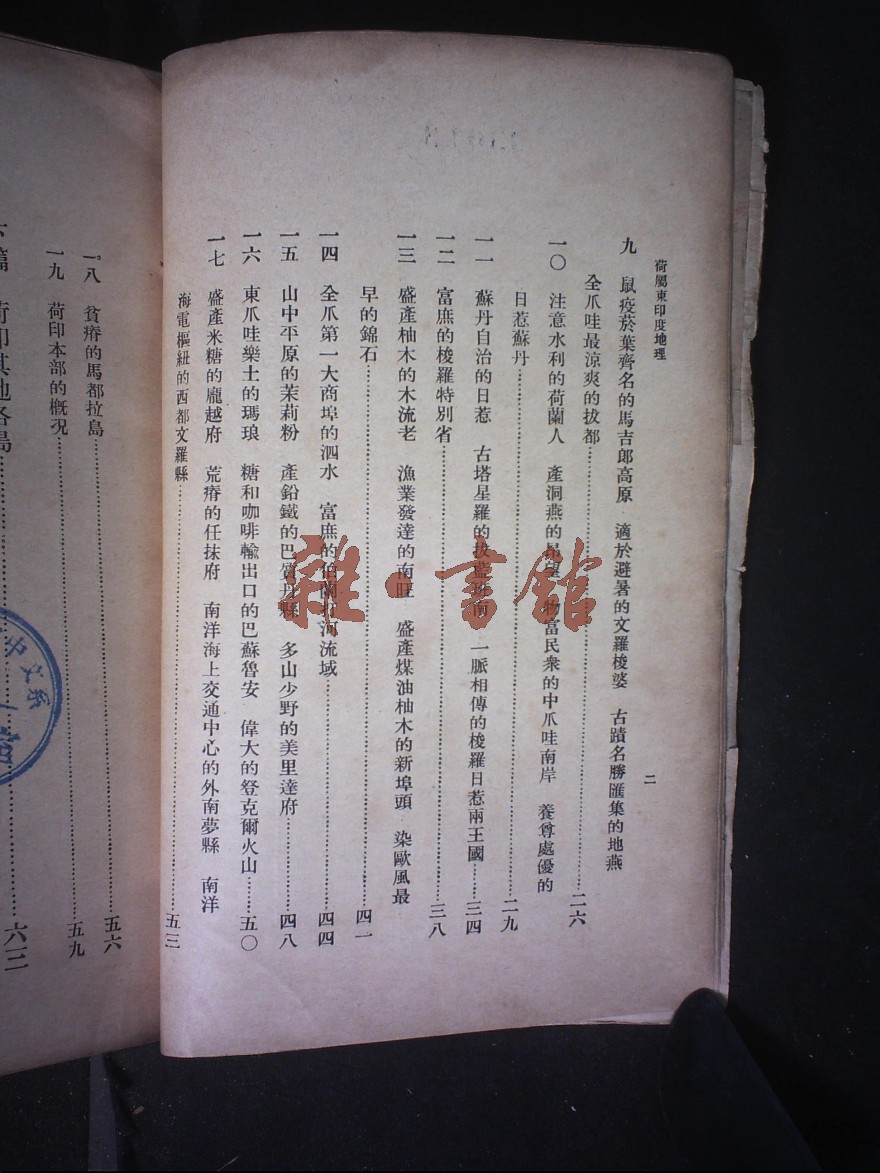 荷屬東印度地理
二
九 鼠疫菸葉齊名的馬吉郎高原 適於避暑的文羅梭婆 古蹟名勝匯集的地燕
全爪哇最涼爽的拔都……二六
一〇 注意水利的荷蘭人 產洞燕的昂望 物富民衆的中爪哇南岸 養尊處優的
日惹蘇丹……二九
一一 蘇丹自治的日惹 古塔星羅的拔藍班南 一脈相傳的梭羅日惹兩王國……三四
一二 富庶的梭羅特別省……三八
一三 盛產柚木的木流老 漁業發達的南旺 盛產煤油柚木的新埠頭 染歐風最
早的錦石……四一
一四 全爪第一大商埠的泗水 富庶的伯蘭打河流域……四四
一五 山中平原的茉莉粉 產鉛鐵的巴賓丹縣 多山少野的美里達府……四八
一六 東爪哇樂土的瑪琅 糖和咖啡輸出口的巴蘇魯安 偉大的登克爾火山……五〇
一七 盛產米糖的龐越府 荒瘠的任抹府 南洋海上交通中心的外南夢縣 南洋
海電樞紐的西都文羅縣……五三
一八 貧瘠的馬都拉島……五六
一九 荷印本部的概況……五九
篇 荷印其他各島……六三
中文系
雜·書館